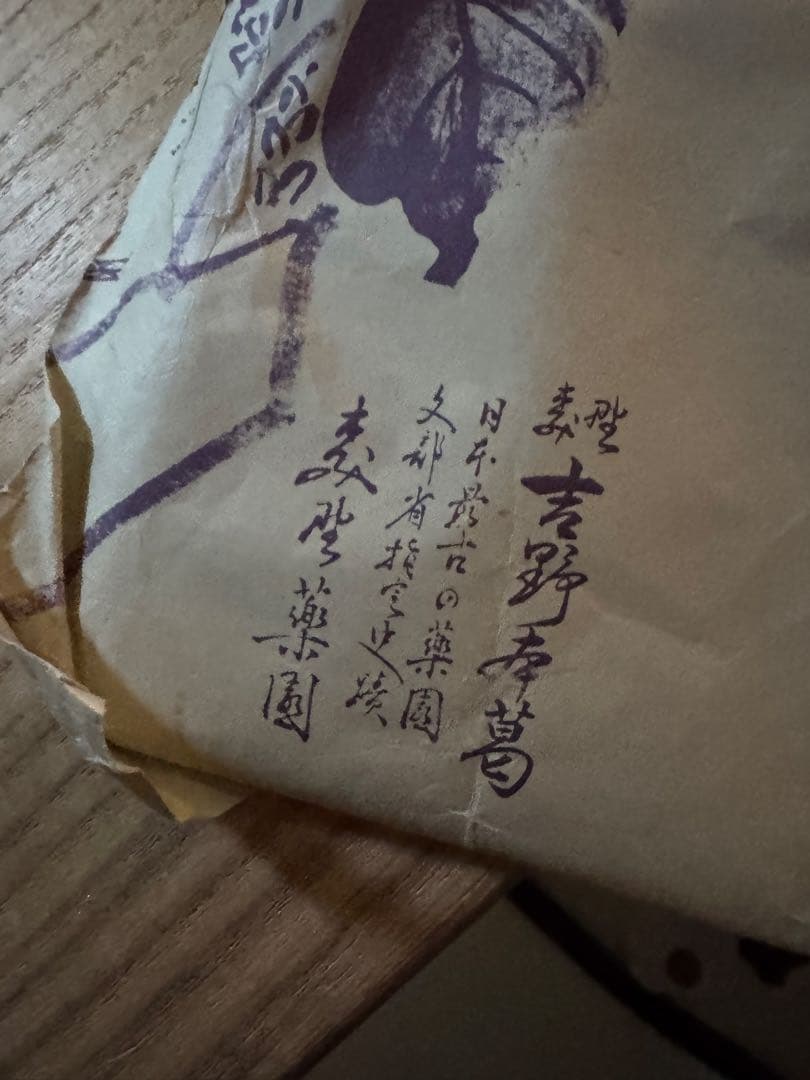 森埜
吉野本葛
日本最古の薬園
文部省指定史蹟
森埜薬園